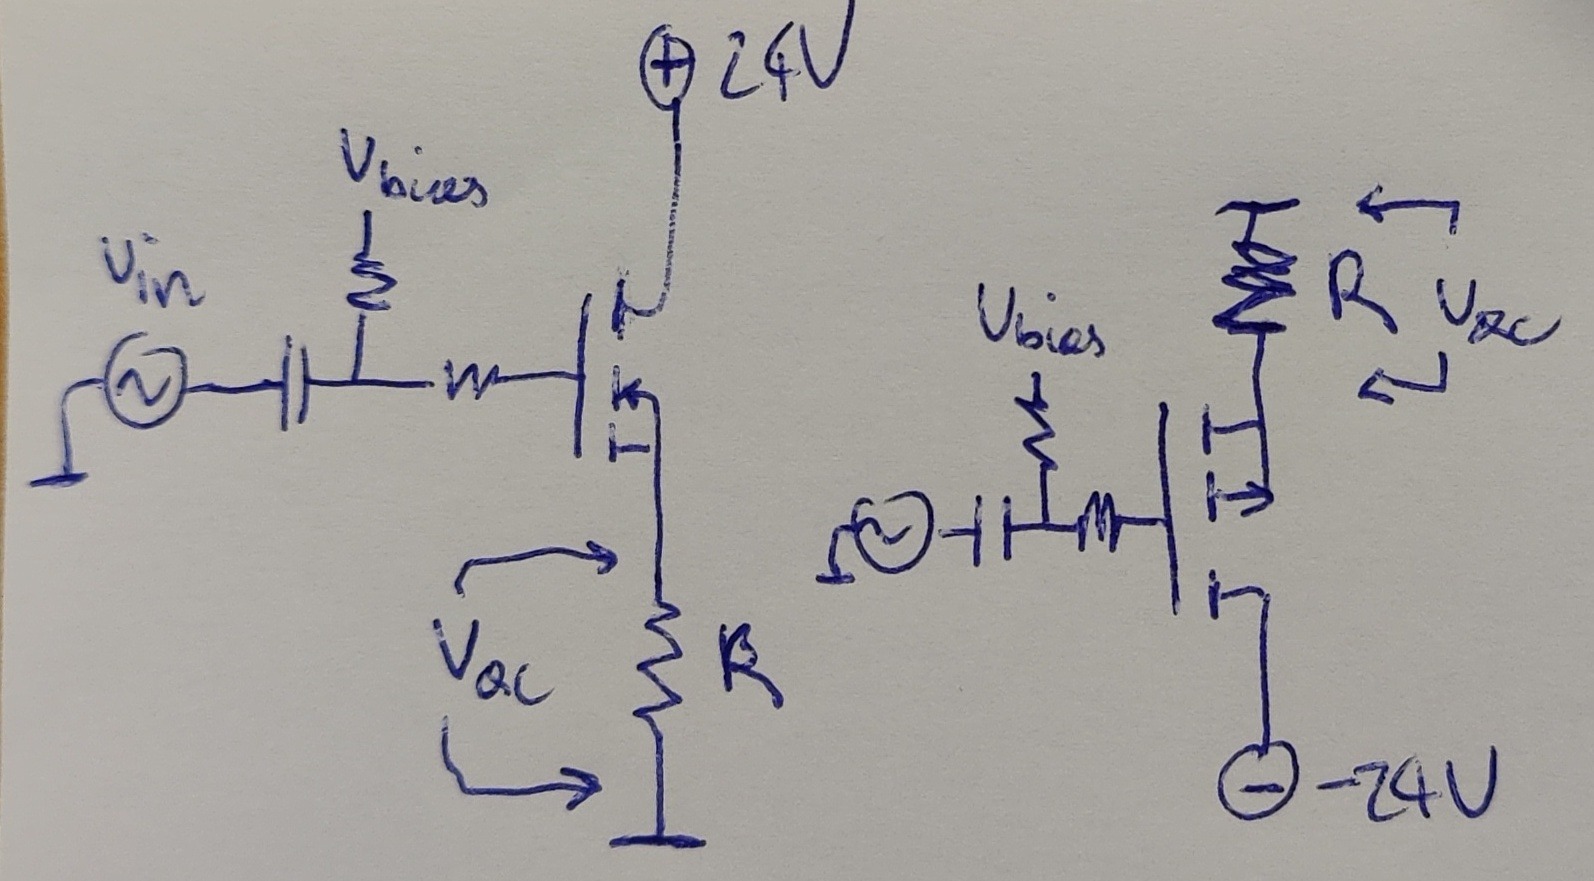 + 24V
Vbias
Vin
Vac
R
Vbias
R
Vac
- -24V